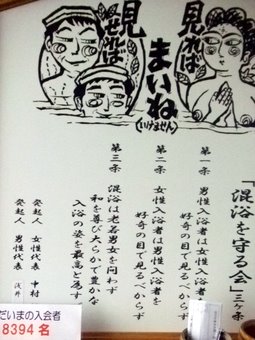 見ればまいね
(いけません)
見せれば
「混浴を守る会」三ケ条
第一条 男性入浴者は女性入浴者を
好奇の目で見るべからず
第二条 女性入浴者は男性入浴者を
好奇の目で見るべからず
第三条 混浴は老若男女を問わず
和を尊び大らかで豊かな
入浴の姿を最高と為す
発起人 女性代表 中村
発起人 男性代表 浅井
だいまの入会者
8394名